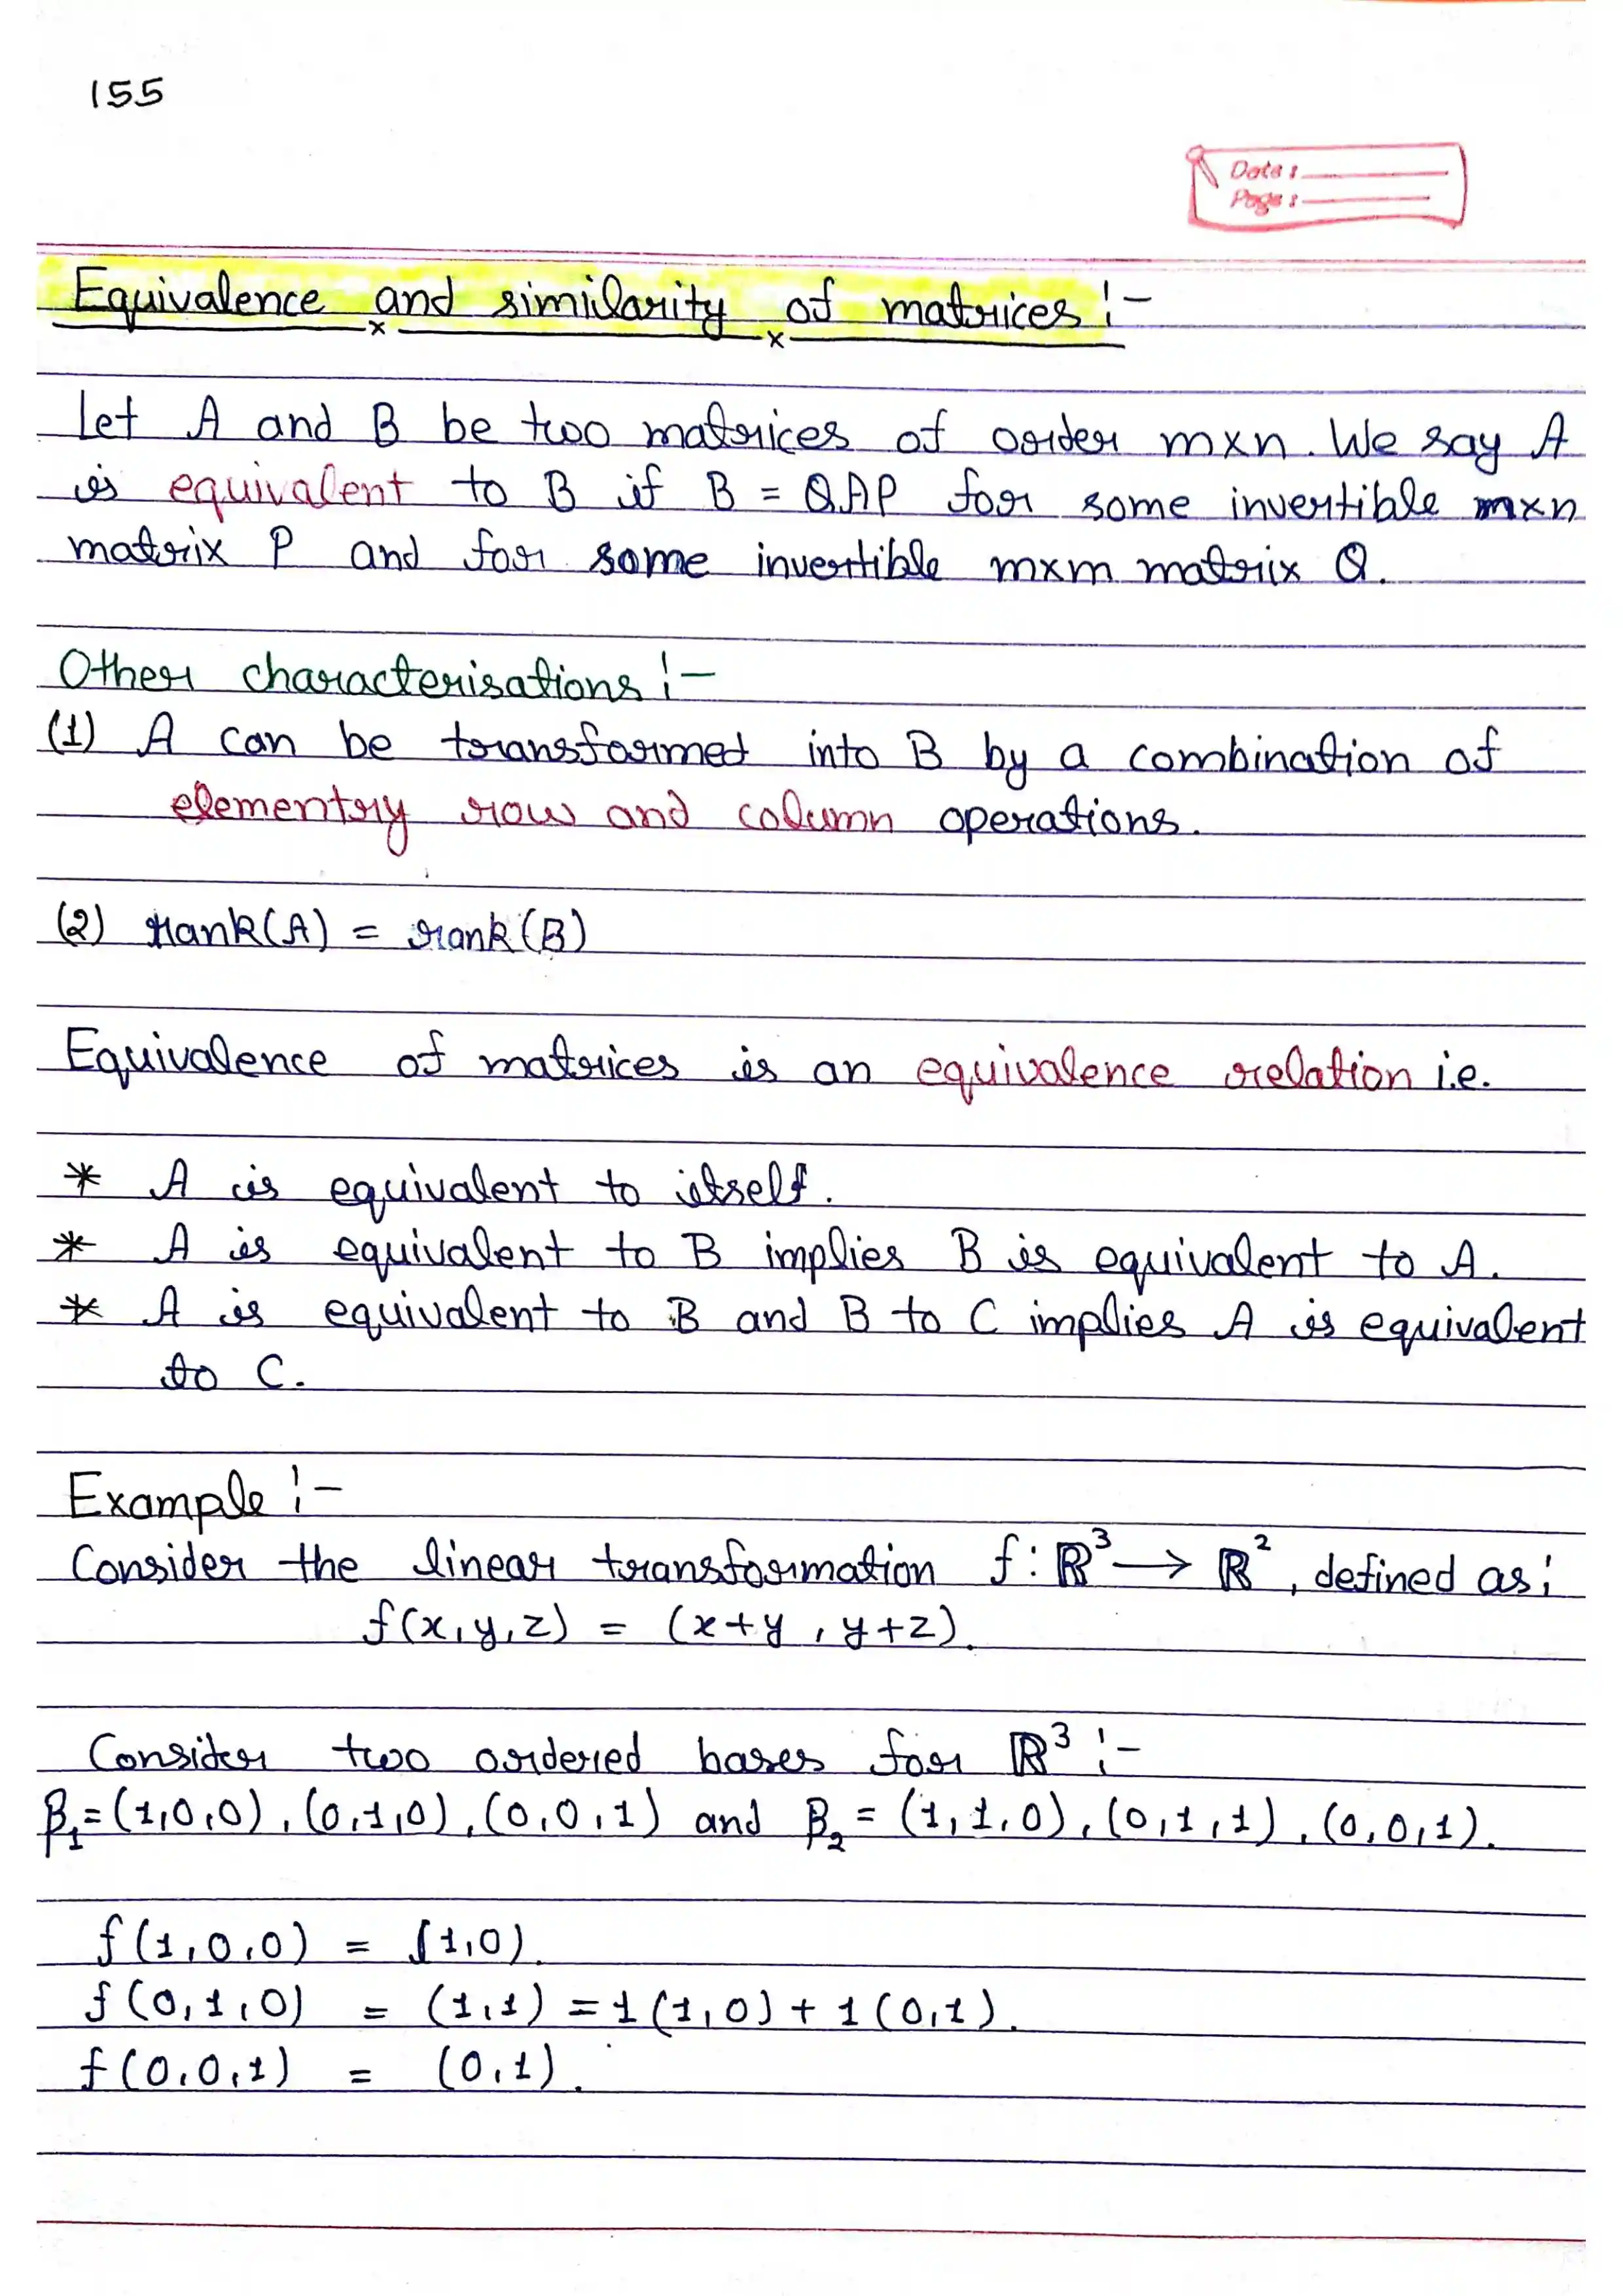 155
Date :
Page :
Equivalence and similarity of matrices :-
Let A and B be two matrices of order m×n. We say A
is equivalent to B if B = QAP for some invertible m×n
matrix P and for some invertible m×m matrix Q.
Other characterisations :-
(1) A can be transformed into B by a combination of
elementry row and column operations.
(2) rank(A) = rank(B)
Equivalence of matrices is an equivalence relation i.e.
* A is equivalent to itself.
* A is equivalent to B implies B is equivalent to A.
* A is equivalent to B and B to C implies A is equivalent
to C.
Example :-
Consider the linear transformation f : ℝ³ → ℝ², defined as;
f(x,y,z) = (x+y, y+z).
Consider two ordered bases for ℝ³ :-
β₁=(1,0,0), (0,1,0), (0,0,1) and β₂ = (1,1,0), (0,1,1), (0,0,1).
f(1,0,0) = (1,0).
f(0,1,0) = (1,1) = 1(1,0) + 1(0,1).
f(0,0,1) = (0,1).